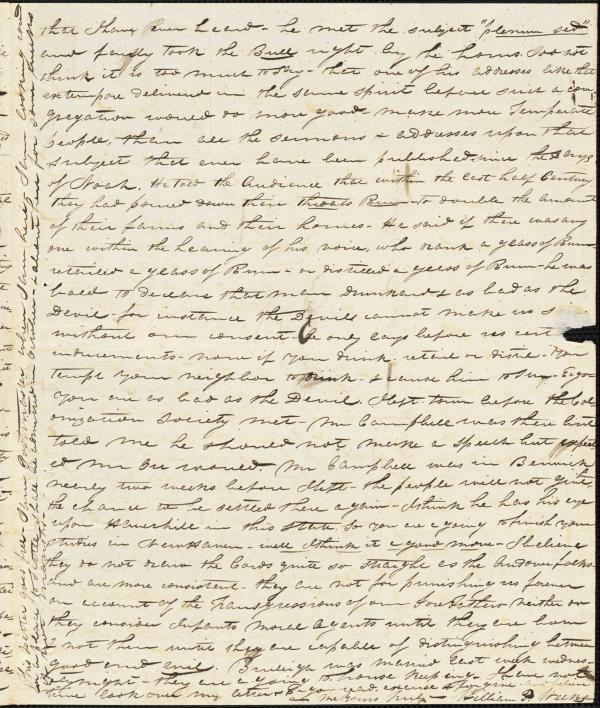 that I have ever heard - he met the subject "plenum sed"
and fairly took the Bull right by the horns. I do not
think it is too much to say - that one of his addresses like that
extempore delivered in the same spirit before such a con
gregation would do more good - make more Temperate
people, than all the sermons & addresses upon that
subject that ever have been published since the Days
of Noah. He told the Audience that within the last half Century
they had poured down their throats Rum - to double the amount
of their farms and their homes - He said if there was any
one within the hearing of his voice, who drank a glass of Rum
retailed a glass of Rum - or distilled a glass of Rum - he was
bold to declare that man Drunkard & as bad as the
Devil - for instance the Devils cannot make us
without our consent - he only lays before us cert
inducements - now if you drink retail or distil - You
tempt your neighbor to drink - & cause him to Sin - Ergo
You are as bad as the Devil. I left town before the Col
onization Society met - Mr Campbell was there but
told me he should not make a speech but expect
ed Mr Orr would. Mr Campbell was in Berwick
nearly two weeks before I left - the people will not give
the chance to be settled there again - I think he has his eye
upon Haverhill in this State So you are going to finish your
studies in New Haven - well I think it a good move - I believe
they do not draw the Cords quite so straight as the Andover folks
and are more consistent - they are not for punishing us forever
on account of the transgressions of our Forefathers neither do
they consider Infants moral Agents until they are born
& not then until they are capable of distinguishing between
good and evil. Burleigh was married last week wednes
day night - they are a going to house keeping. I have not
time look over my letter - & you read, excuse & forgive
William P.